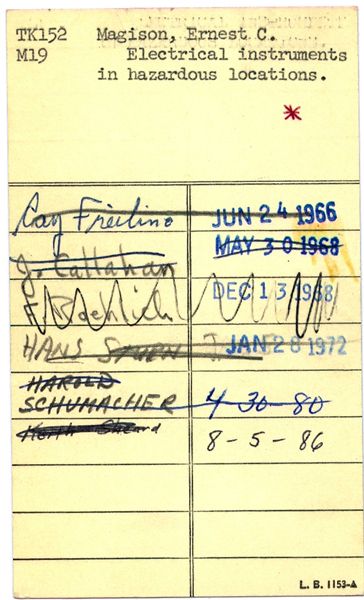 TK152 Magison, Ernest C.
M19 Electrical instruments
in hazardous locations.
*
Ray JUN 24 1966
J. Callahan MAY 30 1968
DEC 13 1968
HANS STURN JAN 28 1972
HAROLD
SCHUMACHER 4-30-80
Keith Sheard 8-5-86
L. B. 1153-A